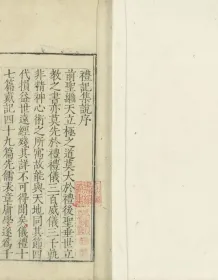 禮記集說序
前聖繼天立極之道莫大於禮後聖垂世立
教之書亦莫先於禮禮儀三百威儀三千孰
非精神心術之所寓故能與天地同其節四
代損益世遠經殘其詳不可得聞矣儀禮十
七篇戴記四十九篇先儒表章庸學遂爲千